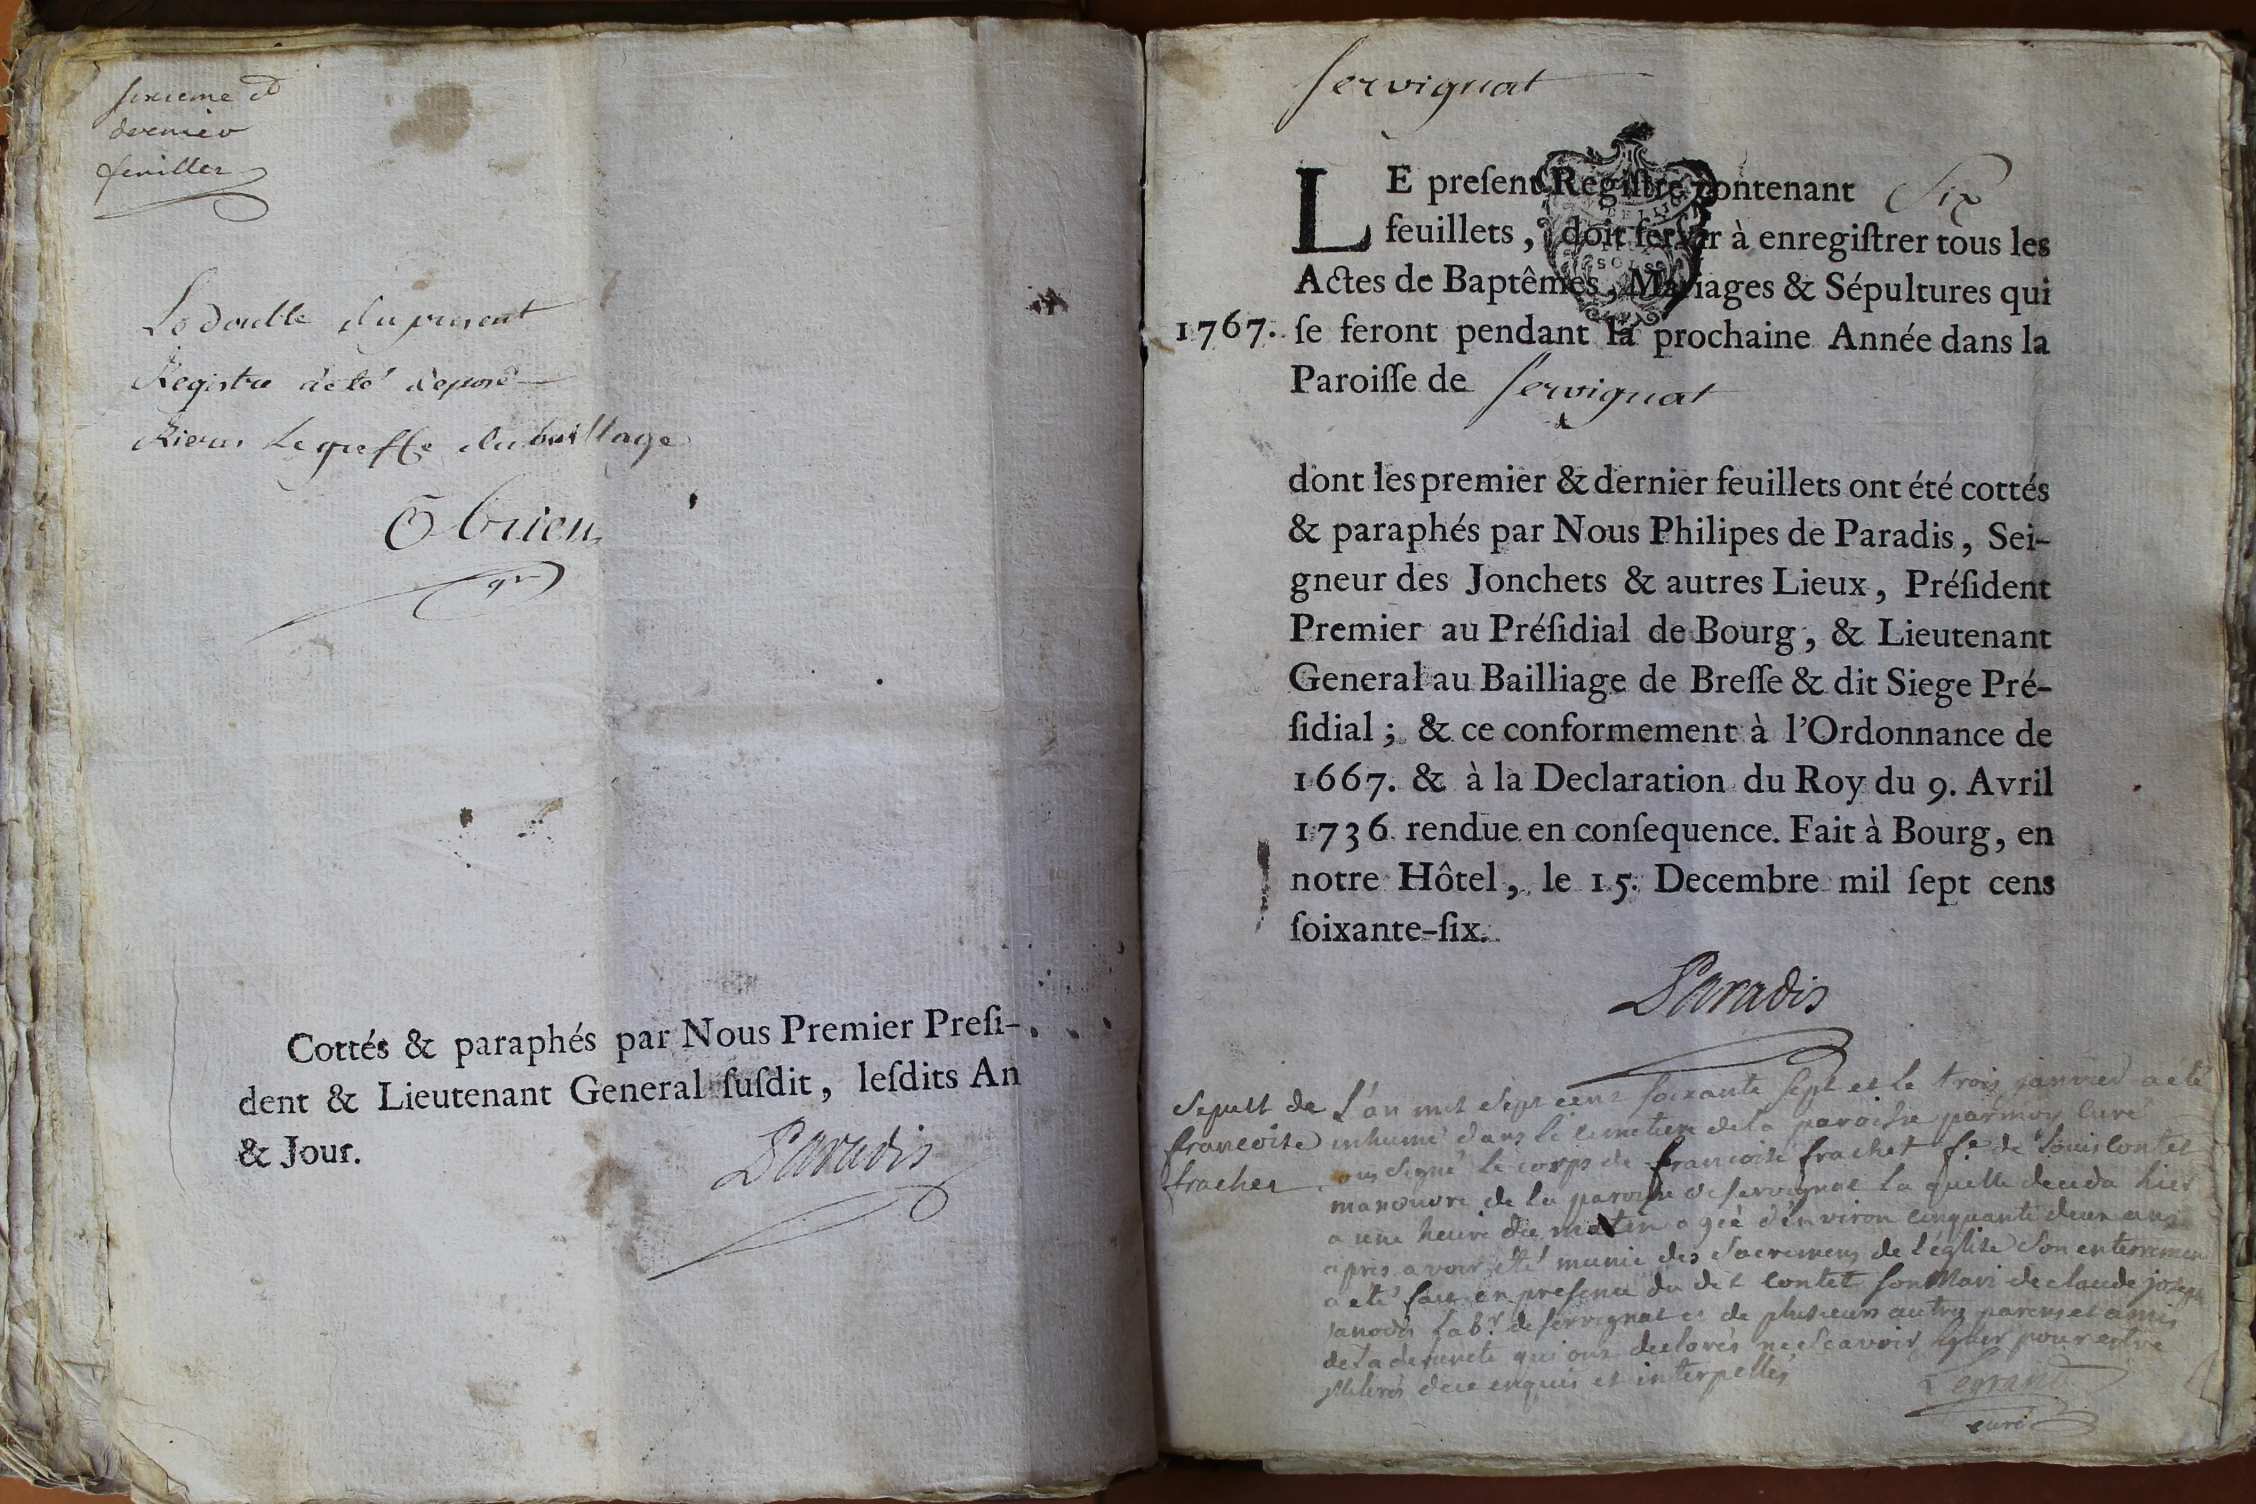 sixieme et
dernier
feuillet
Le double du present
Registre a été déposé
Riere Le greffe du bailliage
Obrien
gr
Cottés & paraphés par Nous Premier Presi-
dent & Lieutenant General susdit, lesdits An
& Jour.
Paradis
servignat
LE present Registre contenant Six
feuillets, doit servir à enregistrer tous les
Actes de Baptêmes, Mariages & Sépultures qui
1767. se feront pendant la prochaine Année dans la
Paroisse de servignat
dont les premier & dernier feuillets ont été cottés
& paraphés par Nous Philipes de Paradis, Sei-
gneur des Jonchets & autres Lieux, Président
Premier au Présidial de Bourg, & Lieutenant
General au Bailliage de Bresse & dit Siege Pré-
sidial; & ce conformement à l'Ordonnance de
1667. & à la Declaration du Roy du 9. Avril
1736 rendue en consequence. Fait à Bourg, en
notre Hôtel, le 15. Decembre mil sept cens
soixante-six.
Paradis
Sepult de
francoise
frachet
L'an mil sept cent soixante sept et le trois janvier a eté
inhumé dans le cimetiere de la paroisse par moy curé
sous signé le corps de francoise frachet fe de Louis contet
manouvre de la paroisse de servignat la quelle deceda hier
a une heure du matin agée d'environ cinquante deux ans
apres avoir été munie des sacremens de l'église son enterremen
a eté fait en presence du dit contet son Mari de claude joseph
janodi labr de servignat et de plusieurs autres parens et amis
de la defuncte qui ont declarés ne scavoir signer pour estre
illiterés de ce enquis et interpellés
Legrand
curé